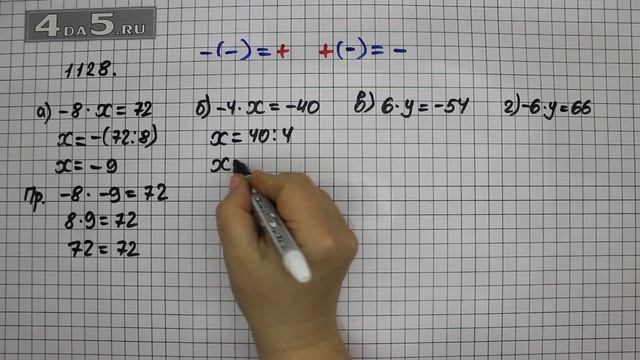 4ДА5.RU
-(-)=+ +(-)=-
1128.
а) -8·x=72
x=-(72:8)
x=-9
Пр. -8·-9=72
8·9=72
72=72
б) -4·x=-40
x=40:4
x
в) 6·y=-54
г) -6·y=66